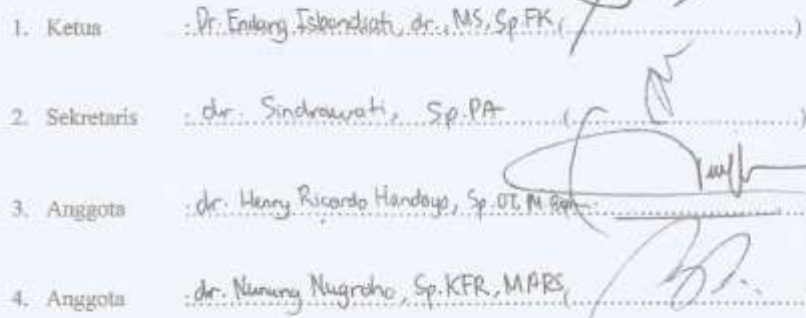 1. Ketua : Dr. Endang Isbandiati, dr., MS, Sp.FK ( )
2. Sekretaris : dr. Sindrawati, Sp.PA ( )
3. Anggota : dr. Henny Ricardo Handoyo, Sp.OT, M.
4. Anggota : dr. Nunung Nugroho, Sp.KFR, MARS (